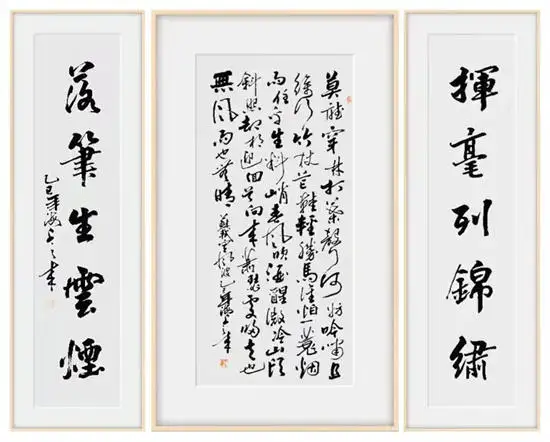 揮毫列錦繡
莫聽穿林打葉聲何妨吟嘯且
徐行竹杖芒鞵輕勝馬誰怕一蓑烟
雨任平生料峭春風吹酒醒微冷山頭
斜照却相迎回首向來蕭瑟處歸去也
無風雨也無晴 蘇軾定風波乙巳年
落筆生雲煙
乙巳年